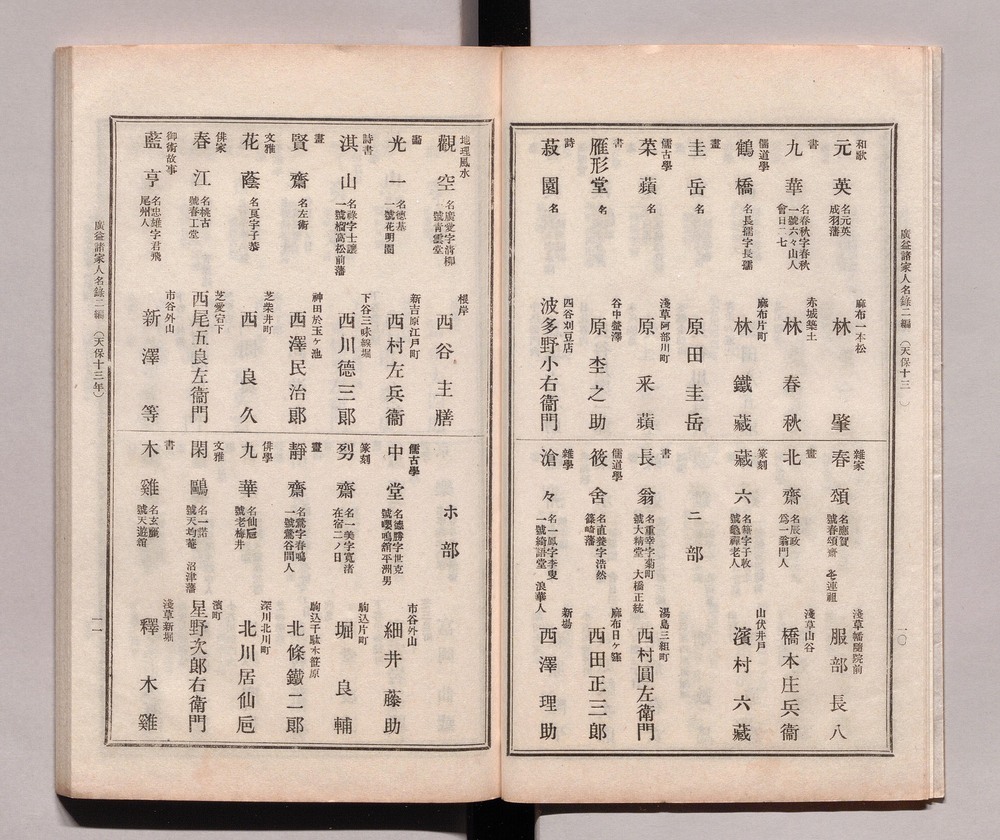 廣益諸家人名錄二編 (天保十三 )
和歌 元英 名元英 成羽藩 麻布一本松 林肇
書 九華 名春秋字春秋 一號六々山人 會日二七 赤城築土 林春秋
儒道學 鶴橋 名長孺字長孺 麻布片町 林鐵藏
畫 圭岳 名 原田圭岳
儒古學 菜蘋 名 淺草阿部川町 原釆蘋
書 雁形堂 名 谷中螢澤 原坔之助
詩 菽園 名 四谷刈豆店 波多野小右衞門
雜家 春頌 號春頌齋 淺草幡隨院前 服部長八
畫 北齋 名辰政 爲一翁門人 淺草山谷 橋本庄兵衞
篆刻 藏六 號龜禪老人 山伏井戸 濱村六藏
二部
書 長翁 名重幸字菊町 號大精堂 大橋正統 湯島三組町 西村圓左衛門
儒道學 筱舍 名直養字浩然 篠崎藩 麻布日ヶ窪 西田正三郎
雜學 滄々 名一鳳字李叟 一號綺語堂 浪華人 新場 西澤理助
一〇
地理風水 觀空 名廣愛字淸柳 一號靑雲堂 根岸 西谷主膳
畵 光一 名德基 一號花明園 新吉原江戸町 西村左兵衞
詩書 淇山 名祿字士讓 一號榴窩松前藩 下谷三味線堀 西川德三郎
畫 賢齋 名左衞 神田於玉ヶ池 西澤民治郎
文雅 花蔭 名良宇子恭 芝柴井町 西良久
俳家 春江 名桃古 號春工堂 芝愛宕下 西尾五良左衞門
御術故事 藍亭 名忠雄字君飛 尾州人 市谷外山 新澤等
ホ部
儒古學 中堂 名德勝字世克 號嚶鳴舘平洲男 市谷外山 細井藤助
篆刻 刕齋 名一美字寬渚 在宿二ノ日 駒込片町 堀良輔
畫 靜齋 名鶯字春鳴 一號鶯谷閒人 駒込千駄木笹原 北條鐵二郎
俳學 九華 名仙巵 號老梅井 深川北川町 北川居仙巵
文雅 閑鷗 名一諾 號天均菴 沼津藩 濱町 星野次郎右衞門
書 木雞 名玄巖 號天遊舘 淺草新堀 釋木雞
廣益諸家人名錄二編 (天保十三年)
一一